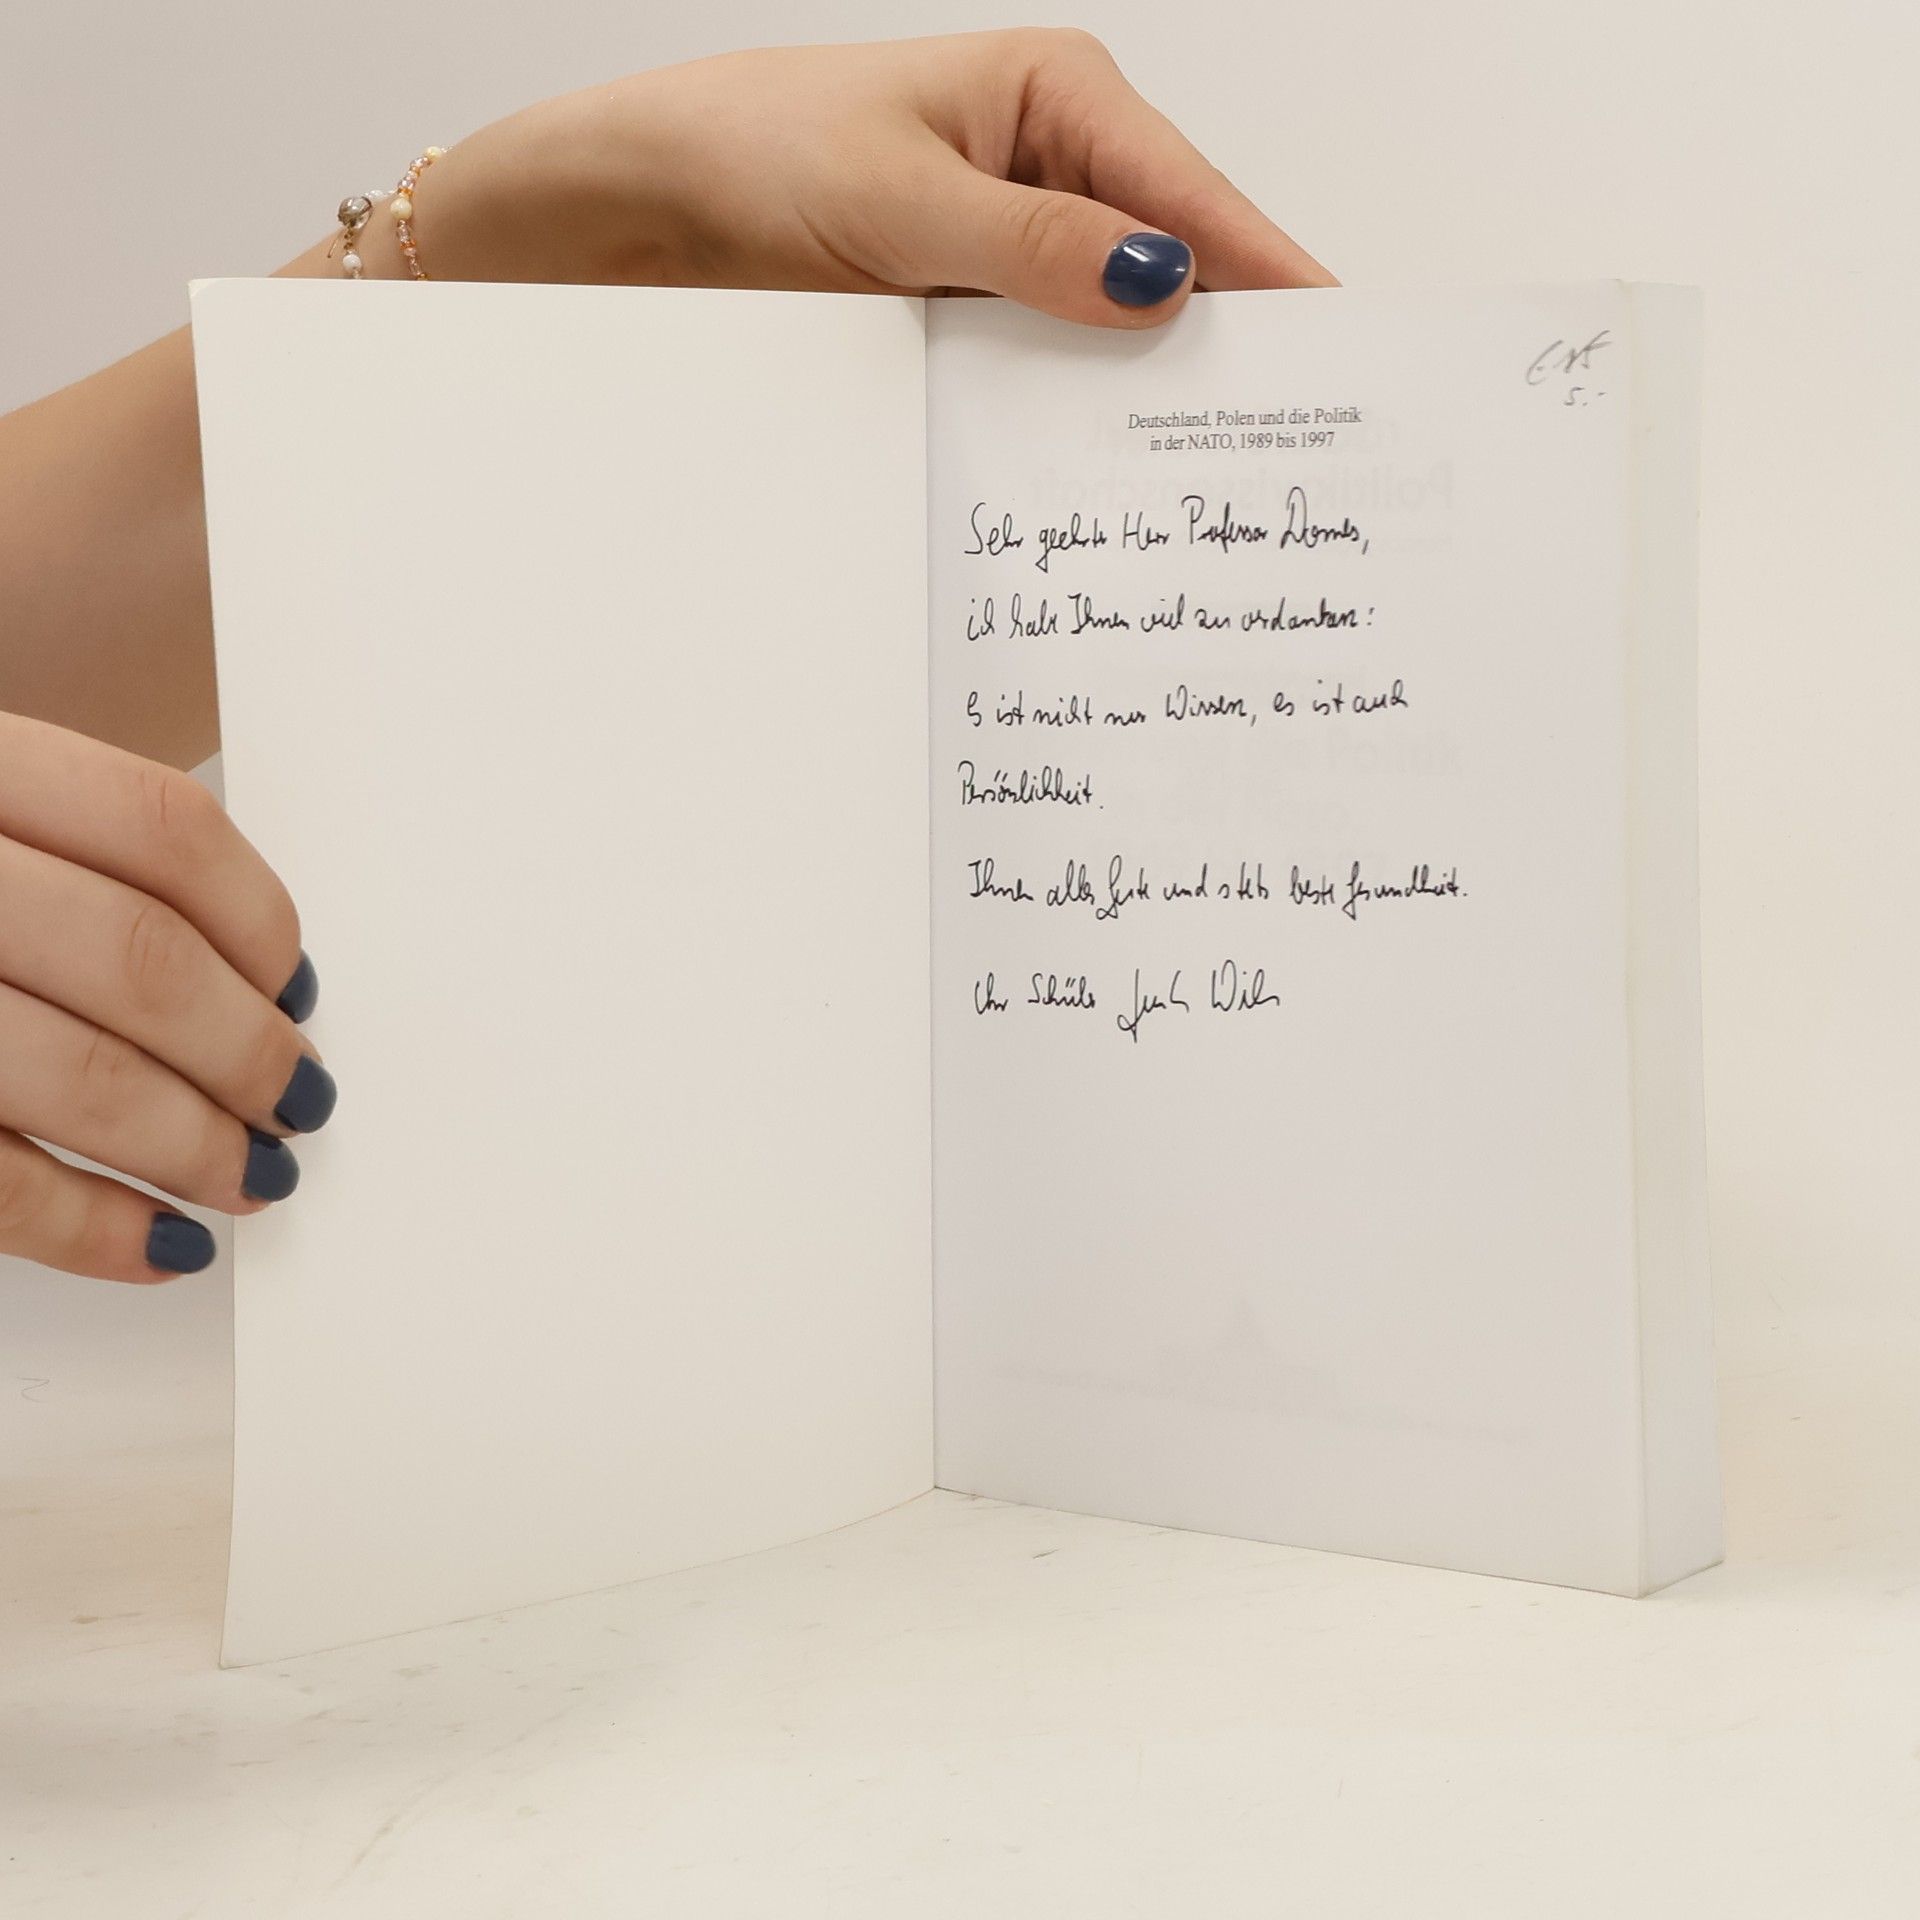 5.-
Deutschland, Polen und die Politik
in der NATO, 1989 bis 1997
Sehr geehrter Herr Professor Domes,
ich habe Ihnen viel zu verdanken:
Es ist nicht nur Wissen, es ist auch
Persönlichkeit.
Ihnen alles Gute und stets beste Gesundheit.
Ihr Schüler